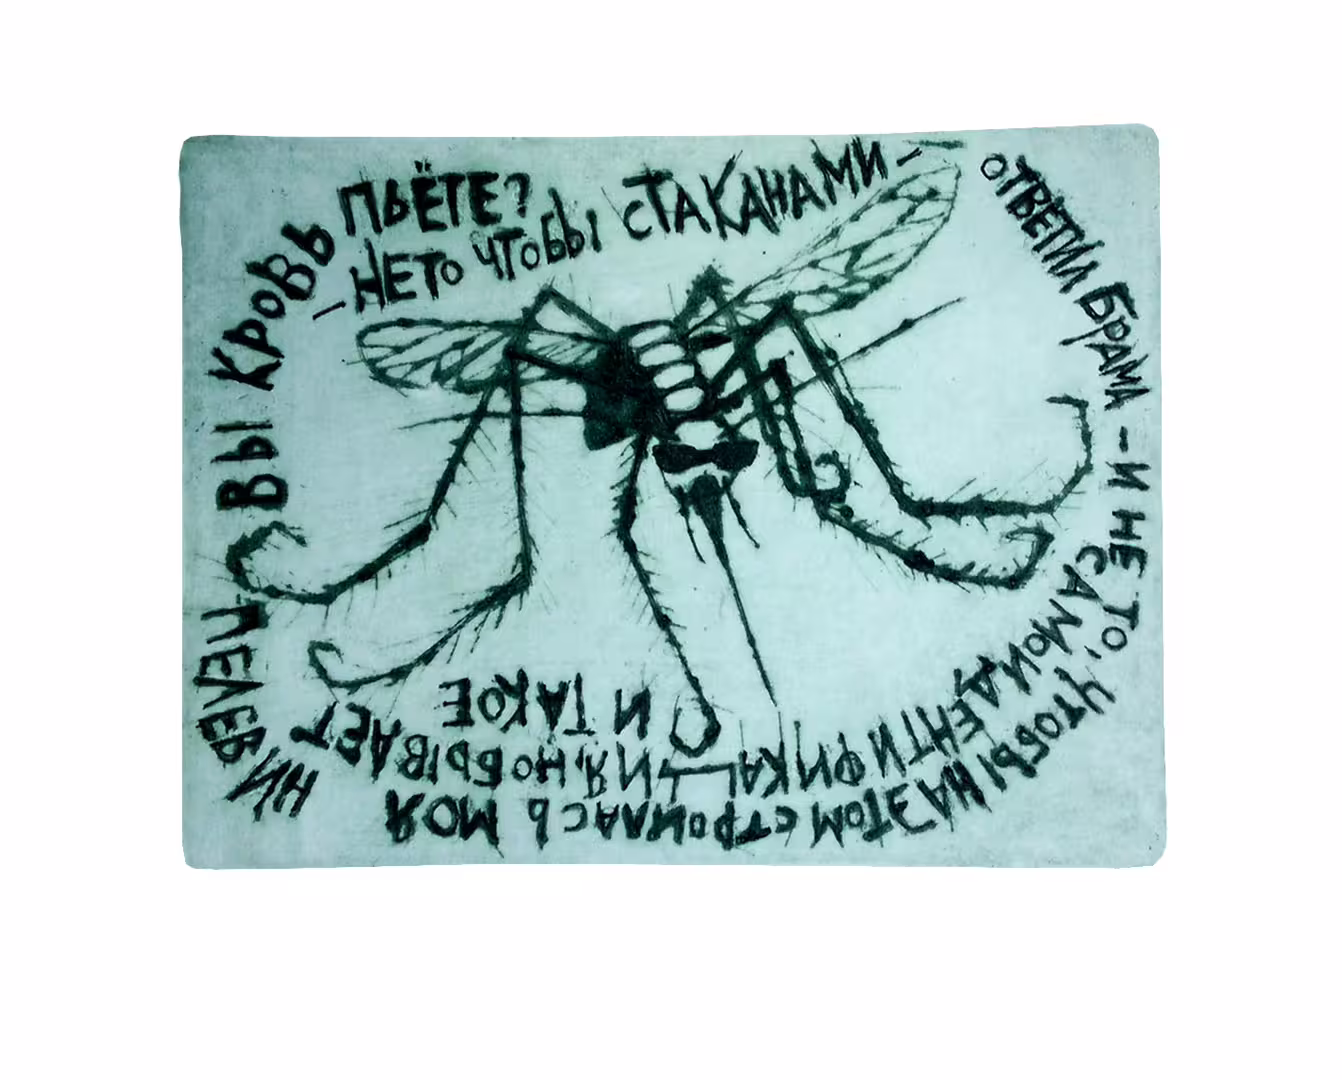 ВЫ КРОВЬ ПЬЁТЕ?
– НЕ ТО ЧТОБЫ СТАКАНАМИ –
ОТВЕТИЛ БРАМА – И НЕ ТО, ЧТОБЫ НА ЭТОМ СТРОИЛАСЬ МОЯ
САМОИДЕНТИФИКАЦИЯ, НО БЫВАЕТ
И ТАКОЕ
ПЕЛЕВИН